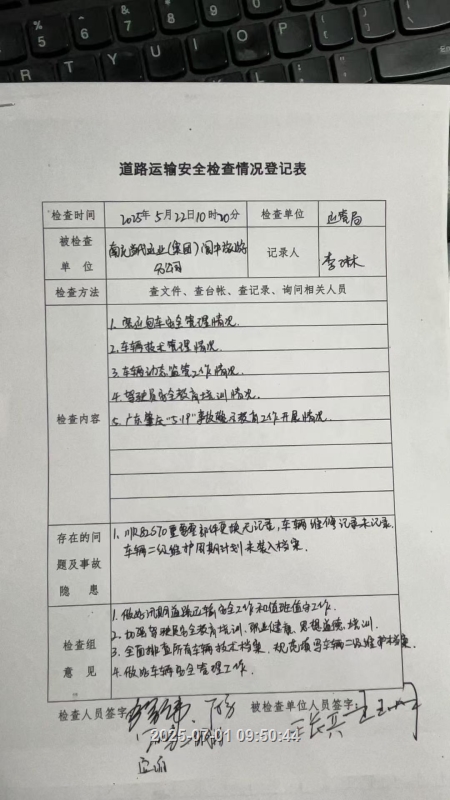 道路运输安全检查情况登记表
检查时间 2025年5月22日10时20分 检查单位 运管局
被检查
单位 南充当代运业(集团)阆中
公司 记录人 李
检查方法 查文件、查台帐、查记录、询问相关人员
检查内容
1. 包车安全管理情况.
2. 车辆技术管理情况.
3. 车辆动态监管工作情况.
4. 驾驶员安全教育培训情况.
5. 广东肇庆"5.19"事故警示教育工作开展情况.
存在的问
题及事故
隐患
1. 川R 重要部件更换无记录,车辆维修记录未记录,
车辆二级维护周期计划未装入档案.
检查组
意见
1. 做好汛期道路运输安全工作和值班值守工作.
2. 加强驾驶员安全教育培训,职业健康、思想道德培训.
3. 全面排查所有车辆技术档案,规范填写车辆二级维护档案.
4. 做好车辆安全管理工作.
检查人员签字: 被检查单位人员签字:
2025-07-01 09:50:44